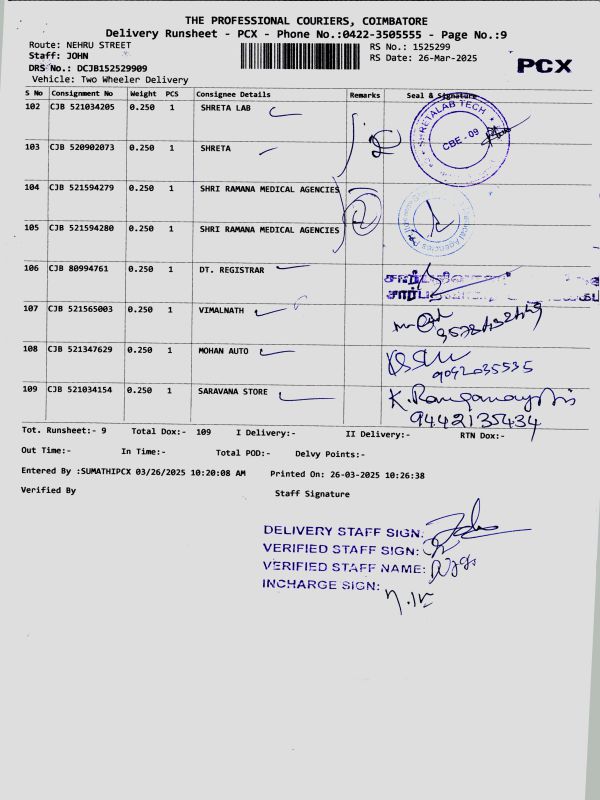 THE PROFESSIONAL COURIERS, COIMBATORE
Delivery Runsheet - PCX - Phone No.:0422-3505555 - Page No.:9
Route: NEHRU STREET
RS No.: 1525299
Staff: JOHN
RS Date: 26-Mar-2025
PCX
DRS No.: DCJB152529909
Vehicle: Two Wheeler Delivery
S No Consignment No Weight PCS Consignee Details Remarks Seal & Signature
102 CJB 521034205 0.250 1 SHRETA LAB
SHRETALAB TECH
CBE - 09
103 CJB 520902073 0.250 1 SHRETA
104 CJB 521594279 0.250 1 SHRI RAMANA MEDICAL AGENCIES
105 CJB 521594280 0.250 1 SHRI RAMANA MEDICAL AGENCIES
106 CJB 80994761 0.250 1 DT. REGISTRAR
107 CJB 521565003 0.250 1 VIMALNATH
108 CJB 521347629 0.250 1 MOHAN AUTO
9092035535
109 CJB 521034154 0.250 1 SARAVANA STORE
9442135434
Tot. Runsheet:- 9 Total Dox:- 109 I Delivery:- II Delivery:- RTN Dox:-
Out Time:- In Time:- Total POD:- Delvy Points:-
Entered By :SUMATHIPCX 03/26/2025 10:20:08 AM Printed On: 26-03-2025 10:26:38
Verified By Staff Signature
DELIVERY STAFF SIGN:
VERIFIED STAFF SIGN:
VERIFIED STAFF NAME:
INCHARGE SIGN: